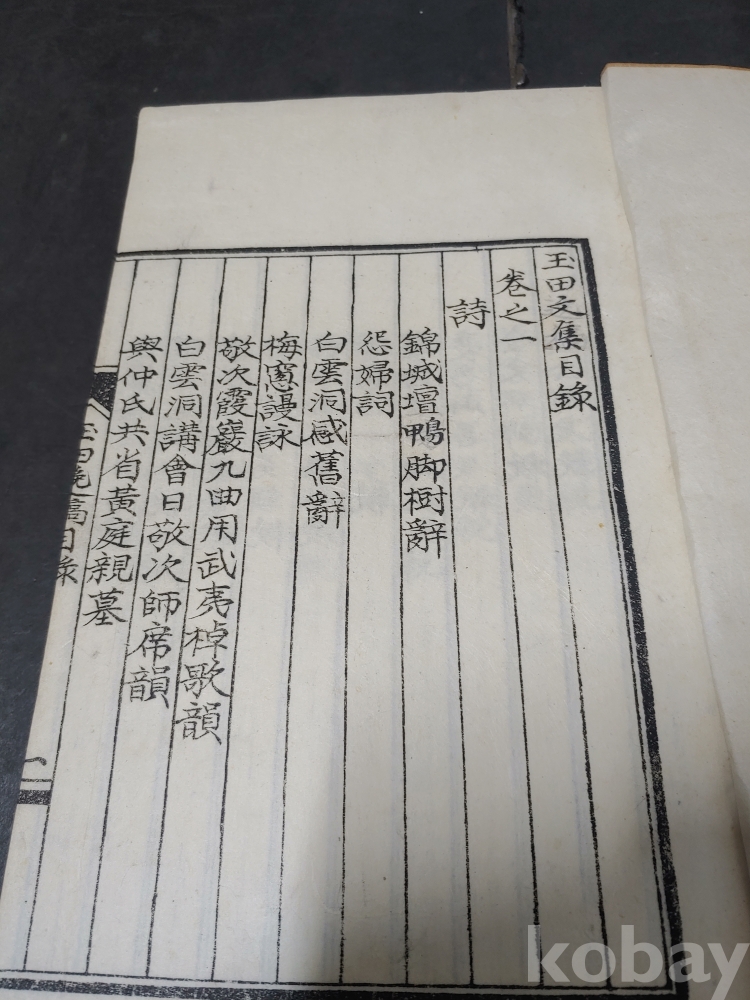 玉田文集目錄
卷之一
詩
錦城壇鴨脚樹辭
怨婦詞
白雲洞感舊辭
梅窓謾詠
敬次霞巖九曲用武夷棹歌韻
白雲洞講會日敬次師席韻
與仲氏共省黃庭親墓
玉田晩稿目錄
一
kobay